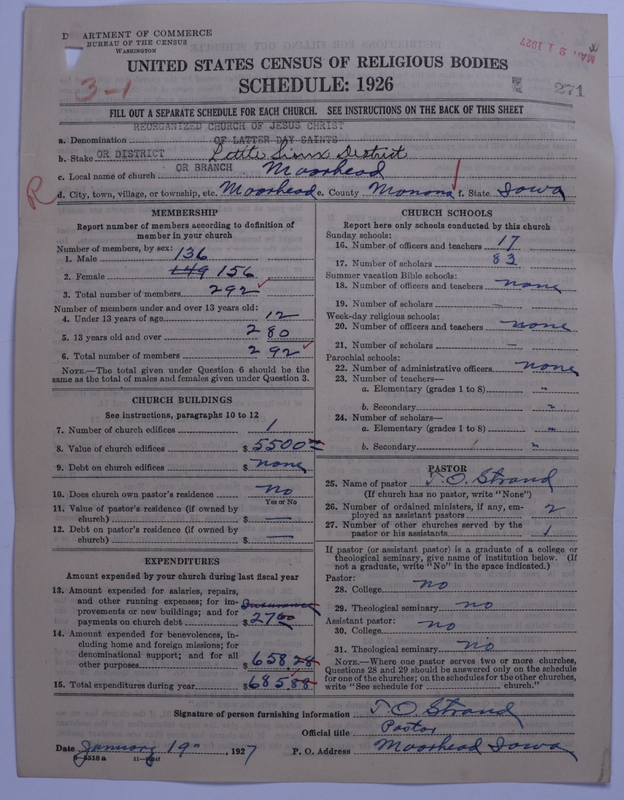 DEPARTMENT OF COMMERCE
BUREAU OF THE CENSUS
WASHINGTON
MAR 21 1927
UNITED STATES CENSUS OF RELIGIOUS BODIES
SCHEDULE: 1926
3-1
271
FILL OUT A SEPARATE SCHEDULE FOR EACH CHURCH. SEE INSTRUCTIONS ON THE BACK OF THIS SHEET
REORGANIZED CHURCH OF JESUS CHRIST
a. Denomination OF LATTER DAY SAINTS
b. Stake OR DISTRICT Little Sioux District
OR BRANCH
c. Local name of church Moorhead
R
d. City, town, village, or township, etc. Moorhead e. County Monona f. State Iowa
MEMBERSHIP
Report number of members according to definition of
member in your church
Number of members, by sex:
1. Male 136
2. Female 149 156
3. Total number of members 292
Number of members under and over 13 years old:
4. Under 13 years of age 12
5. 13 years old and over 280
6. Total number of members 292
NOTE.—The total given under Question 6 should be the
same as the total of males and females given under Question 3.
CHURCH BUILDINGS
See instructions, paragraphs 10 to 12
7. Number of church edifices 1
8. Value of church edifices $ 5500
9. Debt on church edifices $ none
10. Does church own pastor's residence no
Yes or No
11. Value of pastor's residence (if owned by
church) $ —
12. Debt on pastor's residence (if owned by
church) $ —
EXPENDITURES
Amount expended by your church during last fiscal year
13. Amount expended for salaries, repairs,
and other running expenses; for im- Insurance
provements or new buildings; and for
payments on church debt $ 27 60
14. Amount expended for benevolences, in-
cluding home and foreign missions; for
denominational support; and for all
other purposes $ 658.28
15. Total expenditures during year $ 685 88
CHURCH SCHOOLS
Report here only schools conducted by this church
Sunday schools:
16. Number of officers and teachers 17
17. Number of scholars 83
Summer vacation Bible schools:
18. Number of officers and teachers none
19. Number of scholars —
Week-day religious schools:
20. Number of officers and teachers none
21. Number of scholars —
Parochial schools:
22. Number of administrative officers none
23. Number of teachers—
a. Elementary (grades 1 to 8) "
b. Secondary "
24. Number of scholars—
a. Elementary (grades 1 to 8) "
b. Secondary "
PASTOR
25. Name of pastor T. O. Strand
(If church has no pastor, write "None")
26. Number of ordained ministers, if any, em-
ployed as assistant pastors 2
27. Number of other churches served by the
pastor or his assistants 1
If pastor (or assistant pastor) is a graduate of a college or
theological seminary, give name of institution below. (If
not a graduate, write "No" in the space indicated.)
Pastor:
28. College no
29. Theological seminary no
Assistant pastor:
30. College no
31. Theological seminary no
NOTE.—Where one pastor serves two or more churches,
Questions 28 and 29 should be answered only on the schedule
for one of the churches; on the schedules for the other churches,
write "See schedule for church."
Signature of person furnishing information T. O. Strand
Official title Pastor
Date January 19", 1927 P. O. Address Moorhead Iowa